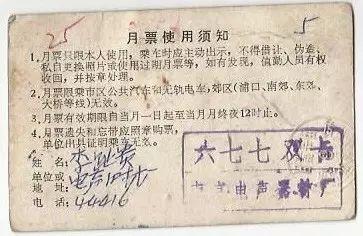 25
5
月票使用须知
1.月票只限本人使用,乘车时应主动出示,不得借让、伪造、
私自更换照片或使用过期月票等,如有发现,值勤人员有权
收回,并按章处理。
2.月票限乘市区公共汽车和无轨电车,郊区(浦口、南郊、东郊、
大桥等线)无效。
3.月票有效期限自当月一日起至当月月终夜12时止。
4.月票遗失和忘带应照章购票,
单位出具证明乘车无效。
姓名:
单位或
地址:
电话:44416
六七七双卡
电声器材厂